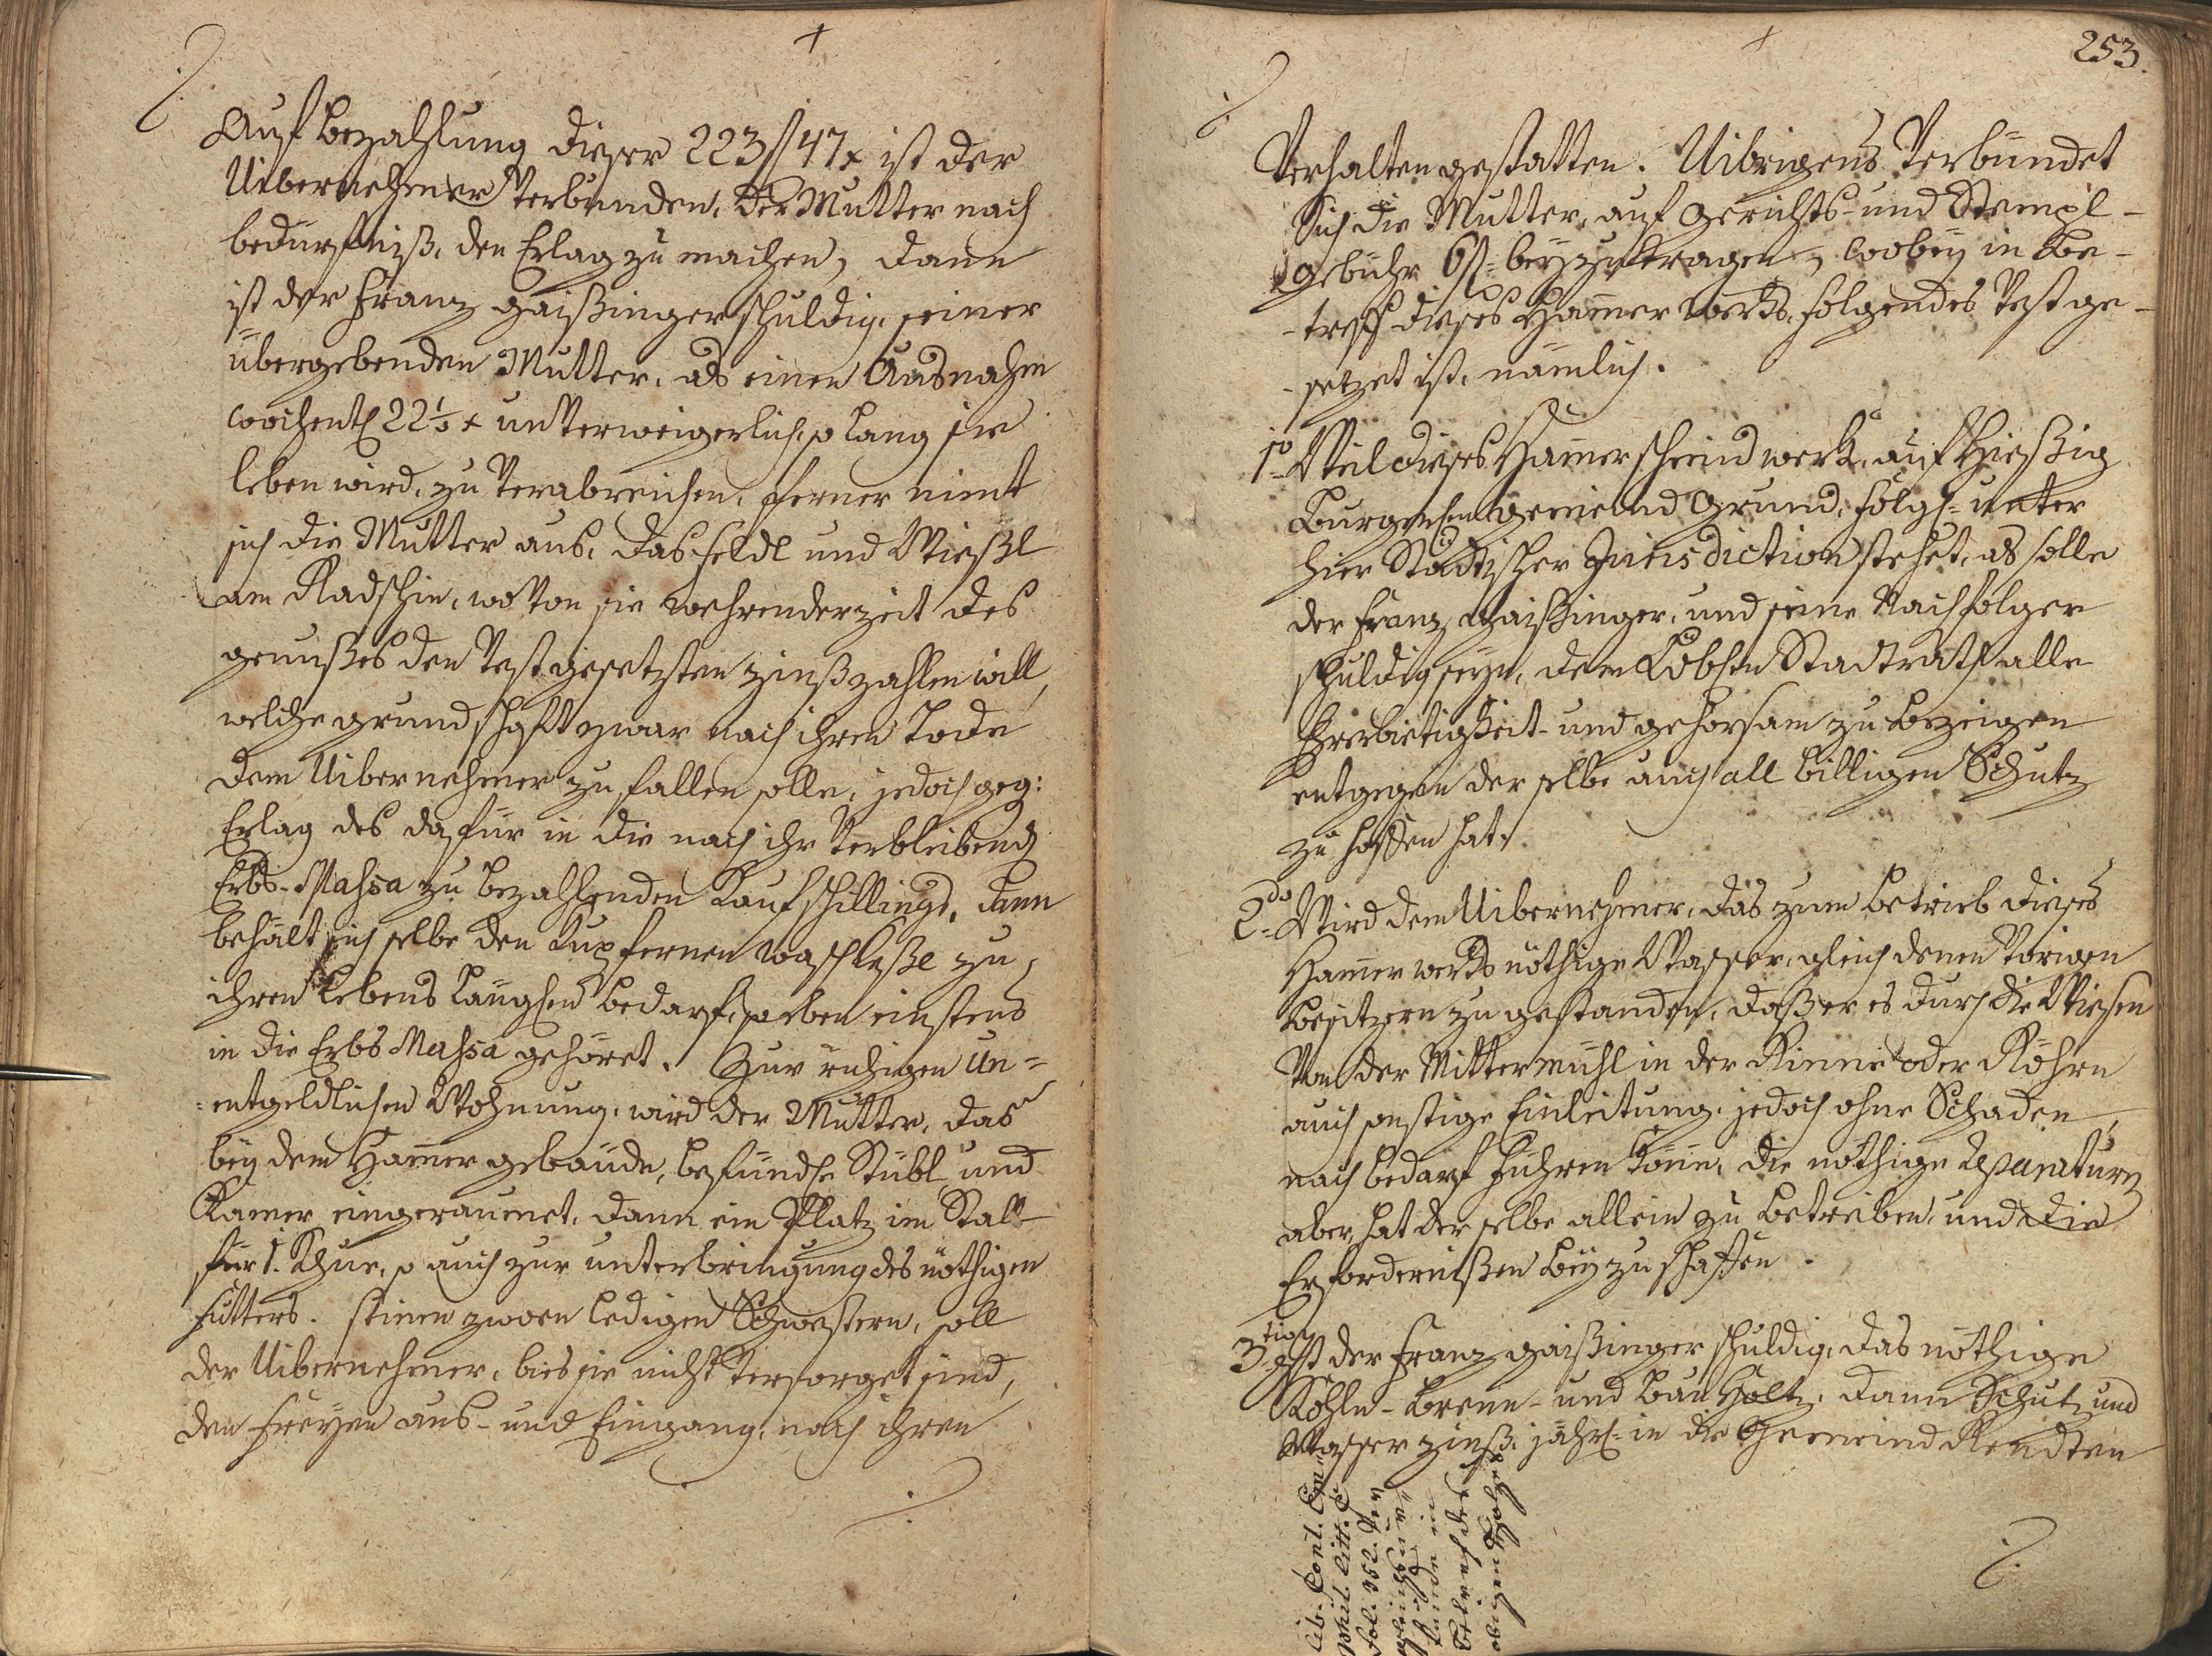 Auf Bezahlung dieser 223 fl 47 x ist der
Uibernehmer verbunden, der Mutter nach
bedürfniß, den Erlag zu machen, dann
ist der Franz Gaißinger schuldig, seiner
übergebenden Mutter, als einen Ausnahm
wochentl 22½ x unverweigerlich, so lang sie
leben wird, zu verabreichen, ferner nimt
sich die Mutter aus, das Feldl und Wießl
am Radschin, wovon sie wehrenderzeit des
genußes den Vestgesetzten Zinß zahlen will,
welche grundschaft zwar nach ihren Tode
dem Uibernehmer zufallen solle, jedoch geg:
Erlag des dafür in die nach ihr verbleibend
Erbs-Massa zu bezahlenden Kaufschillings, dann
behält sich selbe den Kupfernen Waschkeßl zu
ihren Lebens längen bedarf, so eben einstens
in die Erbs Massa gehöret. Zur ruhigen un=
=entgeldlichen Wohnung, wird der Mutter, das
bey dem Hamer gebäude, befindle Stübl und
Kamer eingeraumet, dann ein Platz im Stall
für 1. Khue, so auch zur unterbringung des nöthigen
Futters. seinen zwoen ledigen Schwestern, soll
der Uibernehmer, bies sie nicht versorget sind,
den freyen aus- und Eingang, nach ihren
253.
Verhalten gestatten. Uibrigens Verbindet
Sich die Mutter, auf Gerichts- und Stempl-
gebühr 6 fl = beyzutragen, wobey in Be-
-treff dieses Hamerwerks, folgendes Vestge-
-setzet ist, nämlich.
1o Weil dieses Hamerschmidwerk, auf Hießig
Burgerl gemeind Grund, folgl= unter
hier Städtischer Jurisdiction stehet, als solle
der Franz Gaißinger, und seine Nachfolger
schuldig seyn, dem Löbln Stadtrath alle
Ehrerbietigkeit- und gehorsam zu bezeigen
entgegen derselbe auch all billigen Schutz
zu hoffen hat.
2do Wird dem Uibernehmer, das zum betrieb dieses
Hamerwerks nöthige Wasser, gleich denen Vorigen
Besitzern zugestanden, daß er es durch die Wiesen
Von der Mittermühl in der Rinne oder Röhrn
auch sonstige Einleitung, jedoch ohne Schaden,
nach bedarf führen köne, die nöthige Reparaturen
aber, hat derselbe allein zu betreiben, und die
Erfordernißen beyzuschaffen.
3tio Ist der Franz Gaißinger schuldig, das nöthige
Kohln- Brenn- und Bau Holtz, dann Schutz und
Wasser zinß, jährl= in die Gemeind Rendten
Lib. Cont.
Litt. C
Fol. 352.